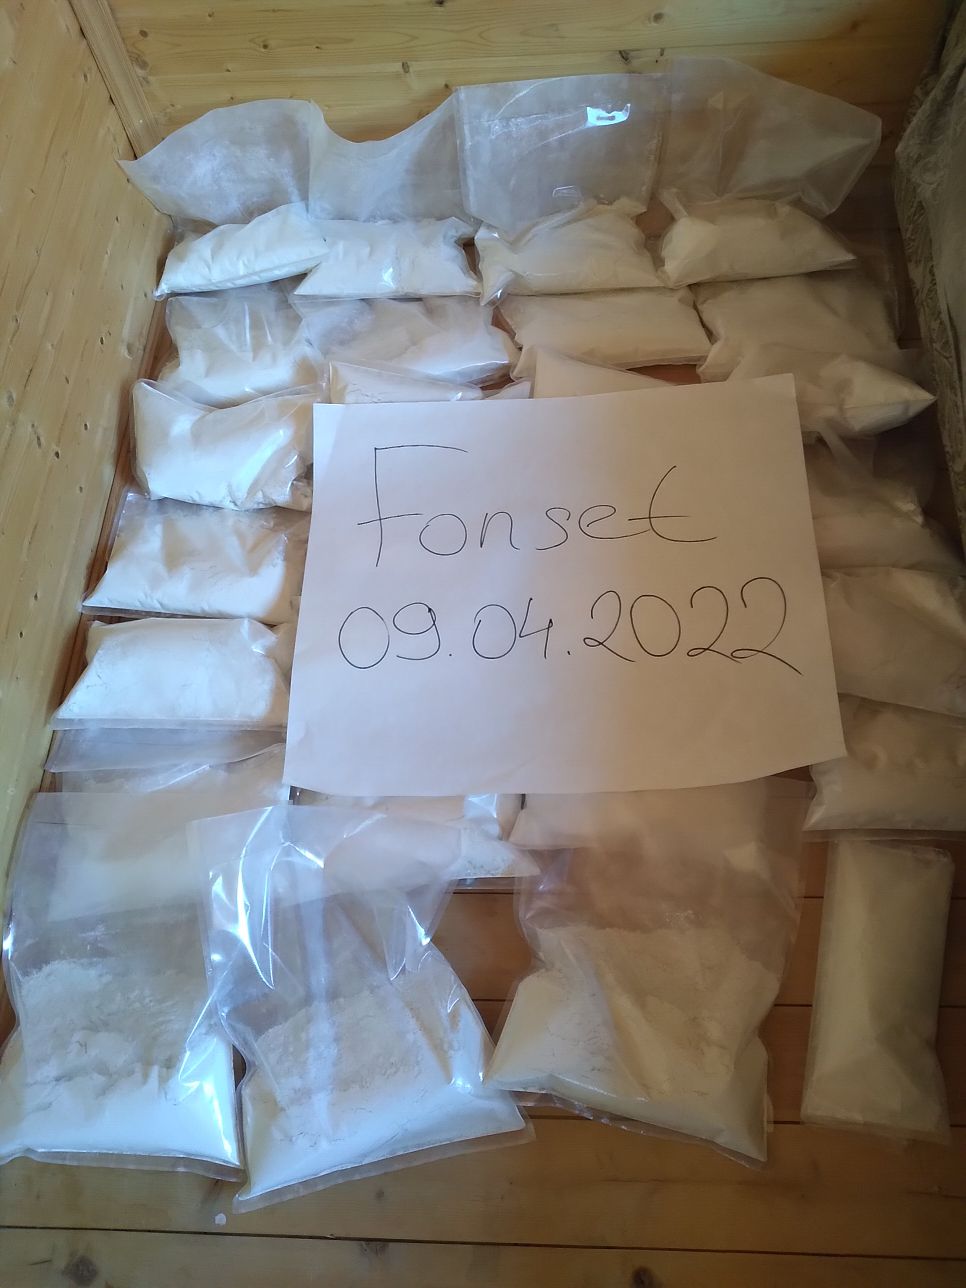 Fonset
09.04.2022